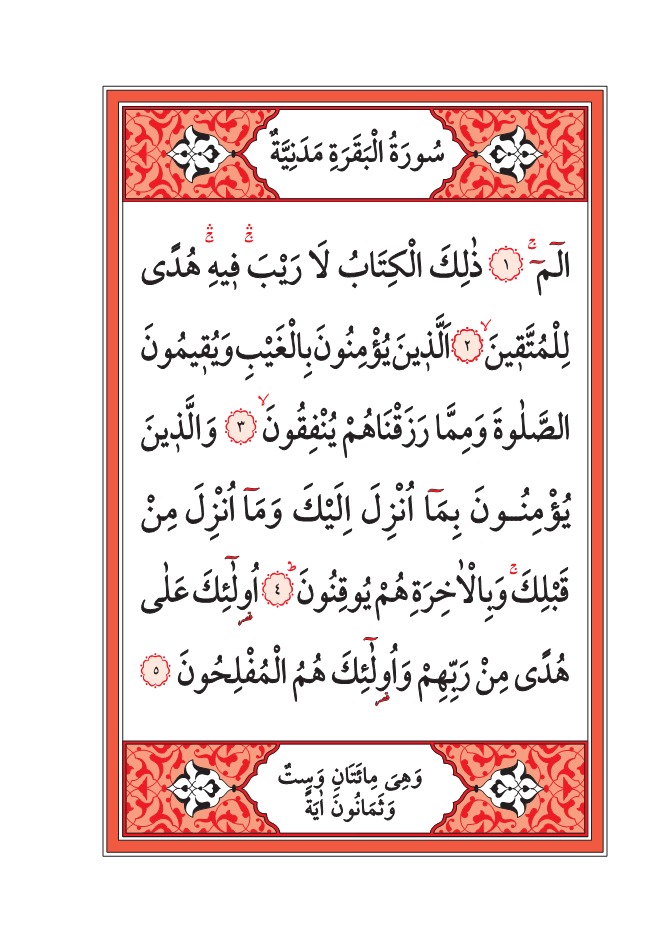 سُورَةُ الْبَقَرَةِ مَدَنِيَّةٌ
الٓمٓ ۚ ﴿١﴾ ذٰلِكَ الْكِتَابُ لَا رَيْبَ ۛ فٖيهِ ۛ هُدًى
لِلْمُتَّقٖينَ ۙ ﴿٢﴾ اَلَّذٖينَ يُؤْمِنُونَ بِالْغَيْبِ وَيُقٖيمُونَ
الصَّلٰوةَ وَمِمَّا رَزَقْنَاهُمْ يُنْفِقُونَ ۙ ﴿٣﴾ وَالَّذٖينَ
يُؤْمِنُـونَ بِمَٓا اُنْزِلَ اِلَيْكَ وَمَٓا اُنْزِلَ مِنْ
قَبْلِكَ ۚ وَبِالْاٰخِرَةِ هُمْ يُوقِنُونَ ؕ ﴿٤﴾ اُو۬لٰٓئِكَ عَلٰى
هُدًى مِنْ رَبِّهِمْ وَاُو۬لٰٓئِكَ هُمُ الْمُفْلِحُونَ ﴿٥﴾
وَهِىَ مِائَتَانِ وَسِتٌّ
وَثَمَانُونَ اٰيَةً